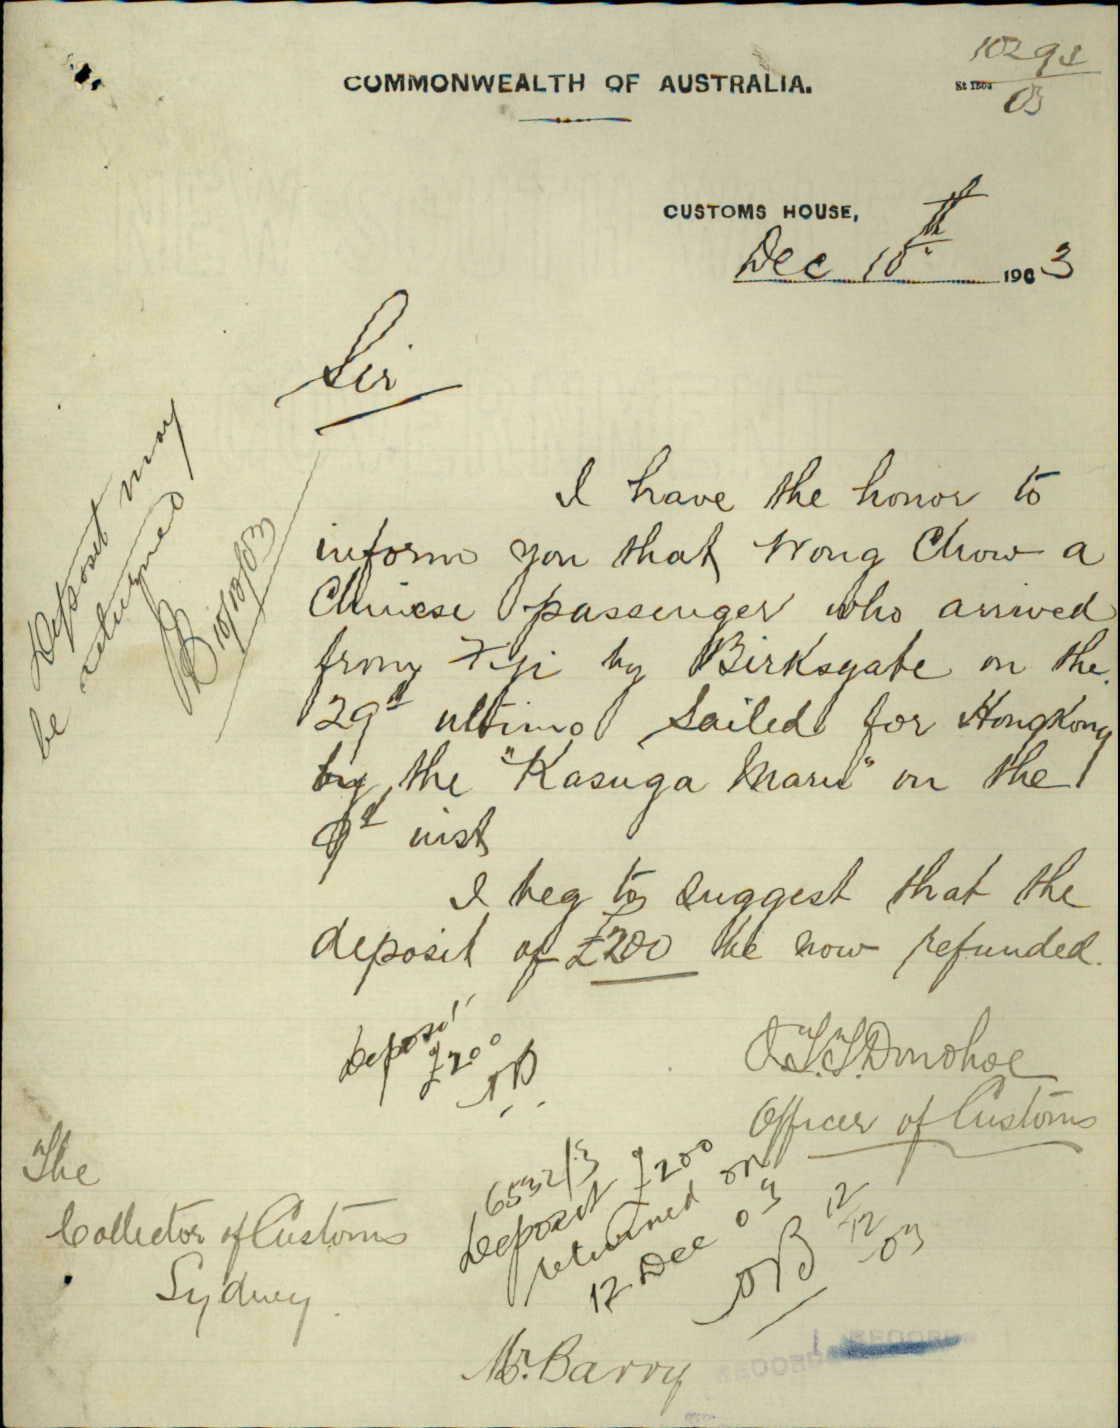 COMMONWEALTH OF AUSTRALIA.
St 1803
03
CUSTOMS HOUSE,
Dec 10th 1903
Sir
I have the honor to
inform you that Wong Chow a
Chinese passenger who arrived
from Fiji by Birksgate on the
29th ultimo sailed for HongKong
by the "Kasuga Maru" on the
9th inst
I beg to suggest that the
deposit of £200 be now refunded.
Donohoe
Officer of Customs
Deposit may
be returned
Deposit
£200
The
Collector of Customs
Sydney.
6532/3
Deposit £200
returned on
12 Dec 03
12
12
03
Mr. Barry